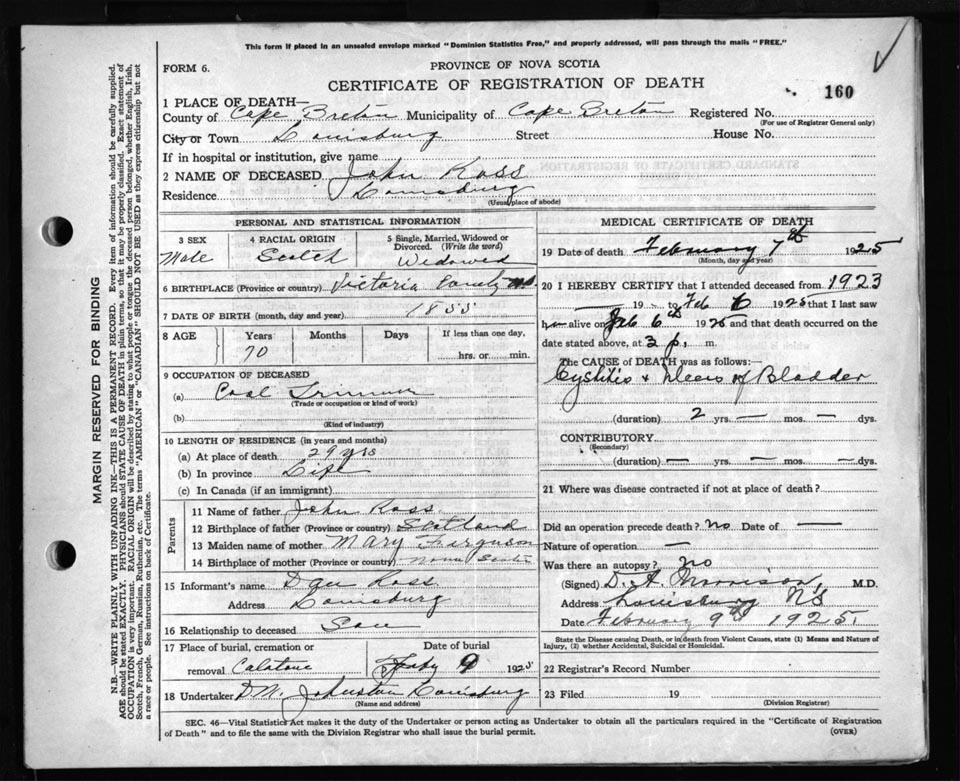 This form if placed in an unsealed envelope marked "Dominion Statistics Free," and properly addressed, will pass through the mails "FREE."
FORM 6.
PROVINCE OF NOVA SCOTIA
CERTIFICATE OF REGISTRATION OF DEATH
160
1 PLACE OF DEATH—
County of Cape Breton Municipality of Cape Breton Registered No.
(For use of Registrar General only)
City or Town Louisburg Street House No.
If in hospital or institution, give name
2 NAME OF DECEASED John Ross
Residence Louisburg
(Usual place of abode)
PERSONAL AND STATISTICAL INFORMATION
3 SEX 4 RACIAL ORIGIN 5 Single, Married, Widowed or Divorced. (Write the word)
Male Scotch Widowed
6 BIRTHPLACE (Province or country) Victoria County N.S.
7 DATE OF BIRTH (month, day and year) 1855
8 AGE Years Months Days If less than one day,
70 hrs. or min.
9 OCCUPATION OF DECEASED
(a) Coal Trimmer
(Trade or occupation or kind of work)
(b)
(Kind of industry)
10 LENGTH OF RESIDENCE (in years and months)
(a) At place of death 29 yrs
(b) In province Life
(c) In Canada (if an immigrant)
Parents
11 Name of father John Ross
12 Birthplace of father (Province or country) Scotland
13 Maiden name of mother Mary Ferguson
14 Birthplace of mother (Province or country) Nova Scotia
15 Informant's name Ross
Address Louisburg
16 Relationship to deceased Son
17 Place of burial, cremation or Date of burial
removal 9 1925
18 Undertaker D.W. Johnston Louisburg
(Name and address)
MEDICAL CERTIFICATE OF DEATH
19 Date of death February 7th 1925
(Month, day and year)
20 I HEREBY CERTIFY that I attended deceased from 1923
19 to Feb 6 1925 that I last saw
h alive on Feb 6th 1925 and that death occurred on the
date stated above, at 3 p. m.
The CAUSE of DEATH was as follows:
Cystitis & Ulcers of Bladder
(duration) 2 yrs. — mos. — dys.
CONTRIBUTORY —
(Secondary)
(duration) — yrs. — mos. — dys.
21 Where was disease contracted if not at place of death?
Did an operation precede death? No Date of —
Nature of operation —
Was there an autopsy? No
(Signed) D. A. Morrison, M.D.
Address Louisburg N S
Date February 9th 1925.
State the Disease causing Death, or in death from Violent Causes, state (1) Means and Nature of Injury, (2) whether Accidental, Suicidal or Homicidal.
22 Registrar's Record Number
23 Filed 19
(Division Registrar)
SEC. 46—Vital Statistics Act makes it the duty of the Undertaker or person acting as Undertaker to obtain all the particulars required in the "Certificate of Registration
of Death" and to file the same with the Division Registrar who shall issue the burial permit.
(OVER)
MARGIN RESERVED FOR BINDING
N.B.—WRITE PLAINLY WITH UNFADING INK—THIS IS A PERMANENT RECORD. Every item of information should be carefully supplied.
AGE should be stated EXACTLY. PHYSICIANS should STATE CAUSE OF DEATH in plain terms, so that it may be properly classified. Exact statement of
OCCUPATION is very important. RACIAL ORIGIN will be described by stating to what people or tongue the deceased person belonged, whether English, Irish,
Scotch, French, German, Russian, Ruthenian, etc. The terms "AMERICAN" or "CANADIAN" SHOULD NOT BE USED as they express citizenship but not
a race or people. See instructions on back of Certificate.